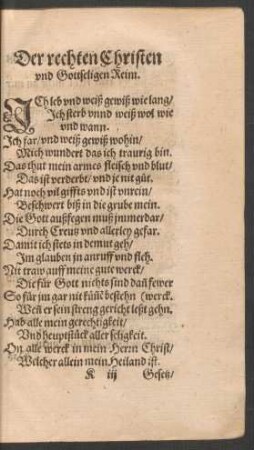 Der rechten Christen
vnd Gottseligen Reim.
ICh leb vnd weiß gewiß wie lang/
Ich sterb vnnd weiß wol wie
vnd wann.
Ich far/ vnd weiß gewiß wohin/
Mich wundert das ich traurig bin.
Das thut mein armes fleisch vnd blut/
Das ist verderbt/ vnd je nit gůt.
Hat noch vil giffts vnd ist vnrein/
Beschwert biß in die grube mein.
Die Gott außfegen muß jmmerdar/
Durch Creutz vnd allerley gefar.
Damit ich stets in demut geh/
Im glauben jn anruff vnd fleh.
Nit traw auff meine gute werck/
Die für Gott nichts sind dañ fewer
So für jm gar nit küñẽ bestehn (werck.
Weñ er sein streng gericht leßt gehn.
Hab alle mein gerechtigkeit/
Vnd heuptstück aller seligkeit.
On alle werck in mein Herrn Christ/
Welcher allein mein Heiland ist.
K iij Gesetz/